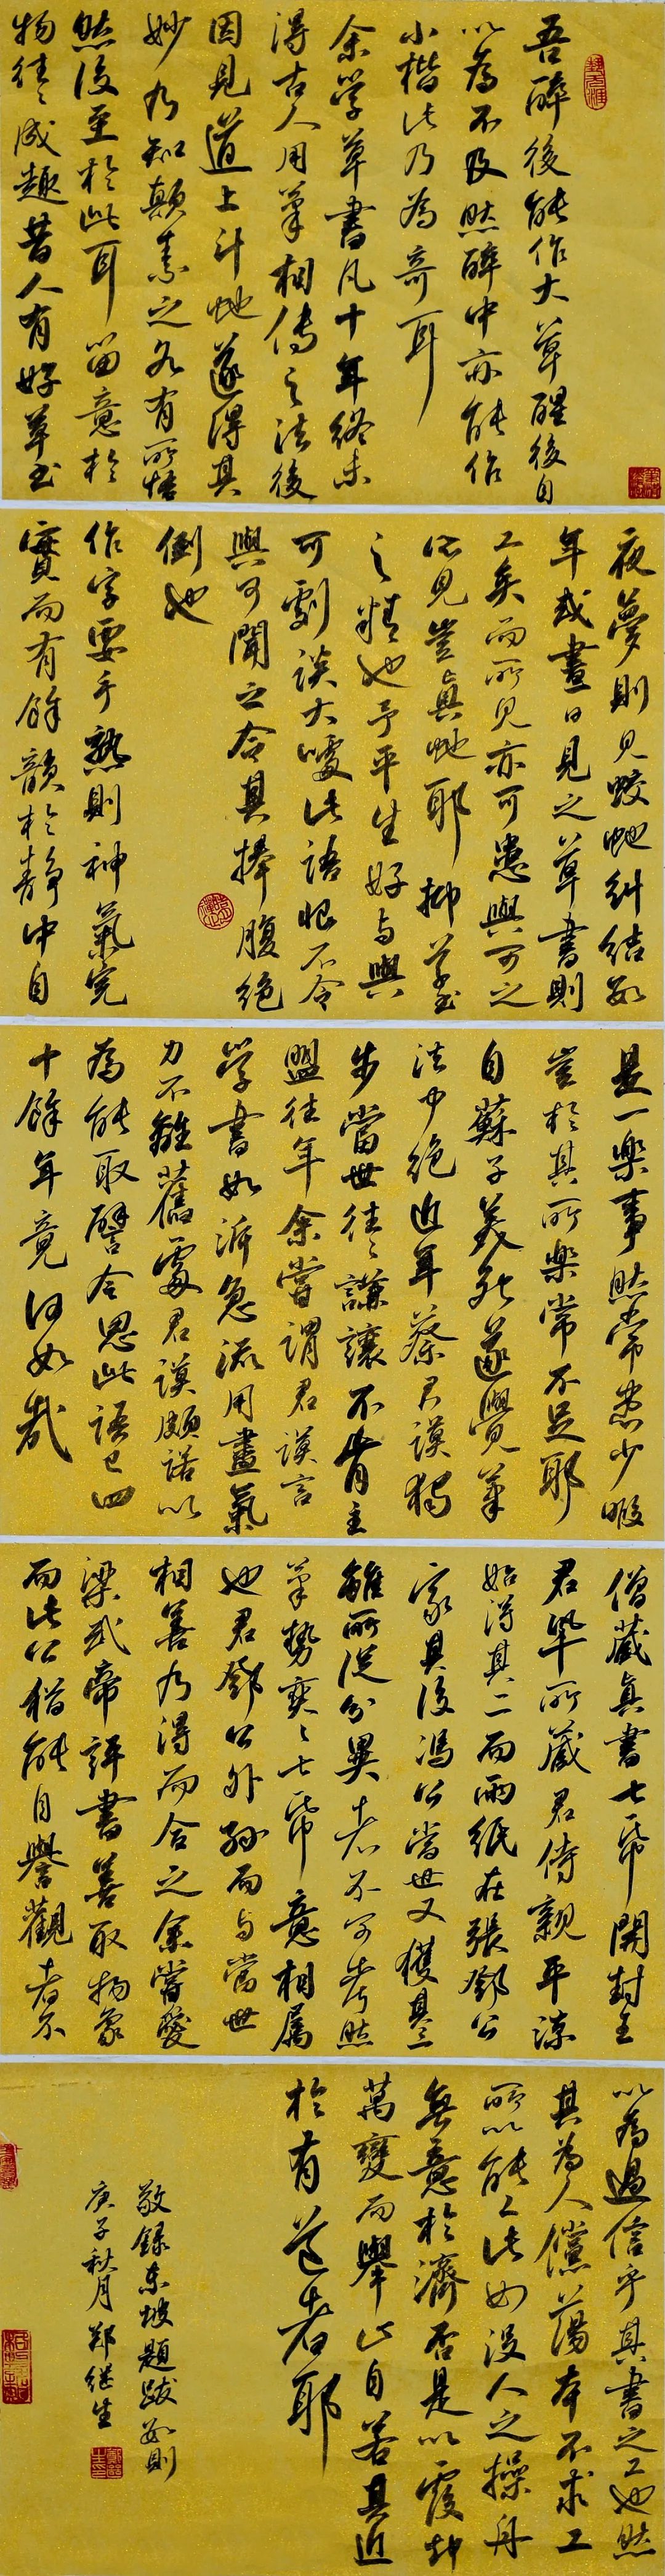 吾醉後能作大草醒後自
以為不及然醉中亦能作
小楷此乃為奇耳
余學草書凡十年終未
得古人用筆相傳之法後
因見道上鬥蛇遂得其
妙乃知顛素之各有所悟
然後至於此耳 留意於
物往往成趣昔人有好草書
夜夢則見蛟蛇糾結數
年或晝日見之草書則
工矣而所見亦可患與可之
所見豈真蛇耶 抑草書
之精也予平生好與與
可劇談大噱此語恨不令
與可聞之令其捧腹絕
倒也
作字要手熟則神氣完
實而有餘韻於靜中自
是一樂事然常患少暇
豈於其所樂常不足耶
自蘇子美死遂覺筆
法中絕近年蔡君謨獨
步當世往往謙讓不肯主
盟往年余嘗謂君謨言
學書如泝急流用盡氣
力不離舊處君謨頗諾以
為能取譬今思此語已四
十餘年竟何如哉
僧藏真書七紙開封王
君鞏所藏君侍親平涼
始得其二而兩紙在張鄧公
家其後馮公當世又獲其三
雖所從分異者不可考然
筆勢奕奕七紙意相屬
也君鄧公外孫而與當世
相善乃得而合之余嘗愛
梁武帝評書善取物象
而此公猶能自譽觀者不
以為過信乎其書之工也然
其為人儻蕩本不求工
所以能工此如沒人之操舟
無意於濟否是以覆却
萬變而舉止自若其近
於有道者耶
敬錄東坡題跋數則
庚子秋月 鄭繼生